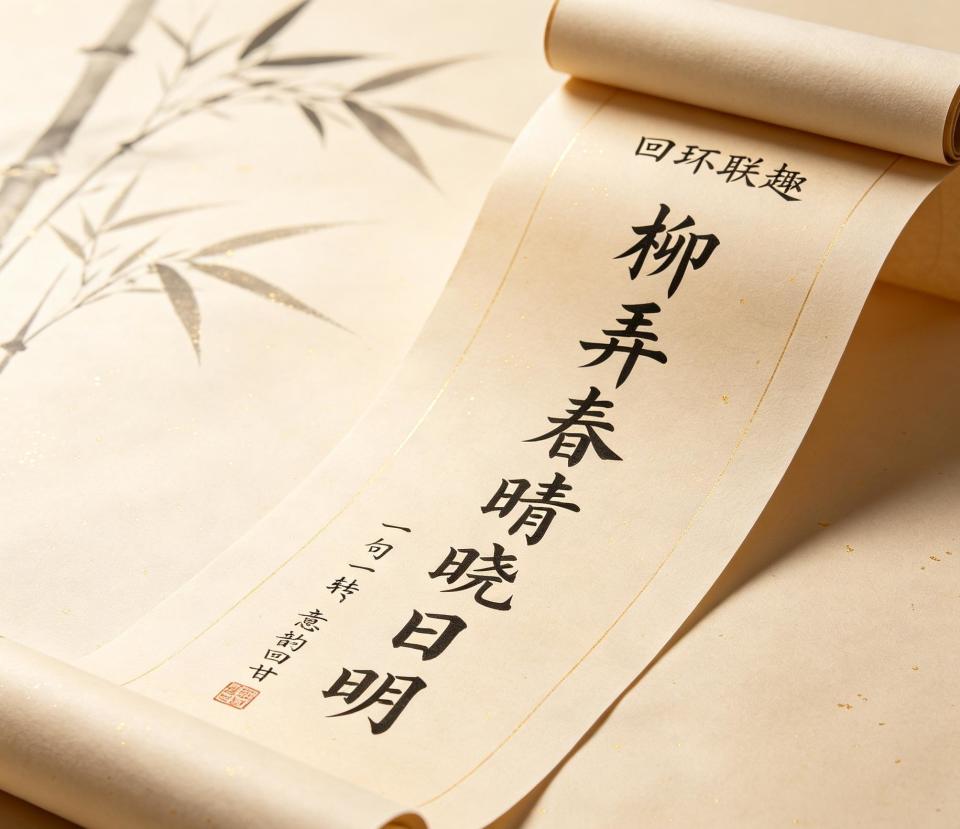 回环联趣
柳弄春晴晓日明
一句一转 意韵回甘